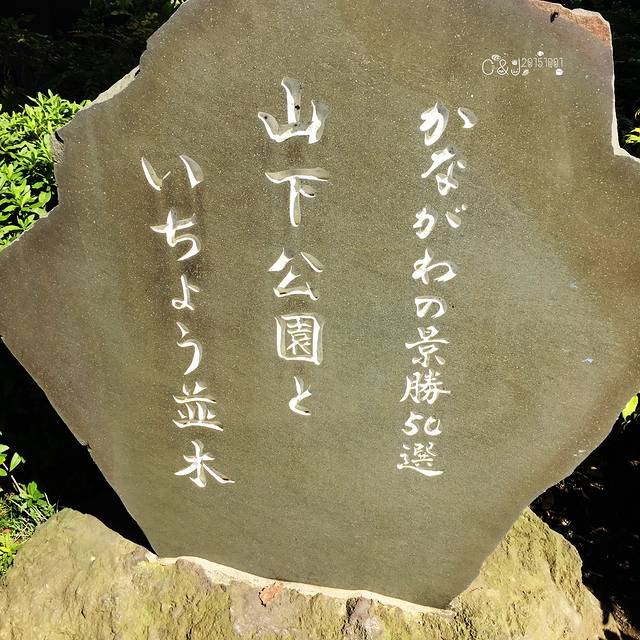 かながわの景勝50選
山下公園と
いちょう並木
C&J 20151001